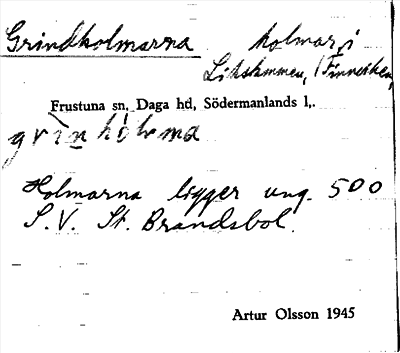 Grindholmarna holmar i
Frustuna sn, Daga hd, Södermanlands l,.
grinhòlma
Holmarna ligger ung. 500
S.V. St. Brandsbol.
Artur Olsson 1945